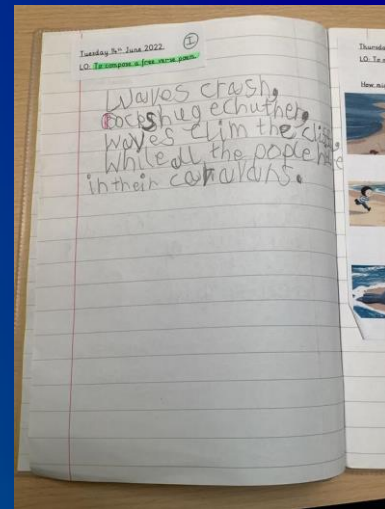 Tuesday 14th June 2022
I
LO: To compose a free verse poem
Waves crash,
rocks hug echuther,
Waves clim the clif,
While all the pople hide
in their caravans.
Thursda
LO: To
How mi